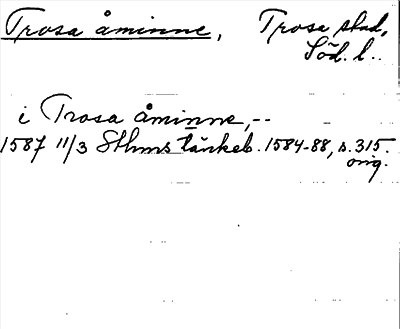 Trosa åminne, Trosa stad,
Söd. l..
i Trosa åminne,--
1587 11/3 Sthms tänkeb. 1584-88, s. 315.
orig.